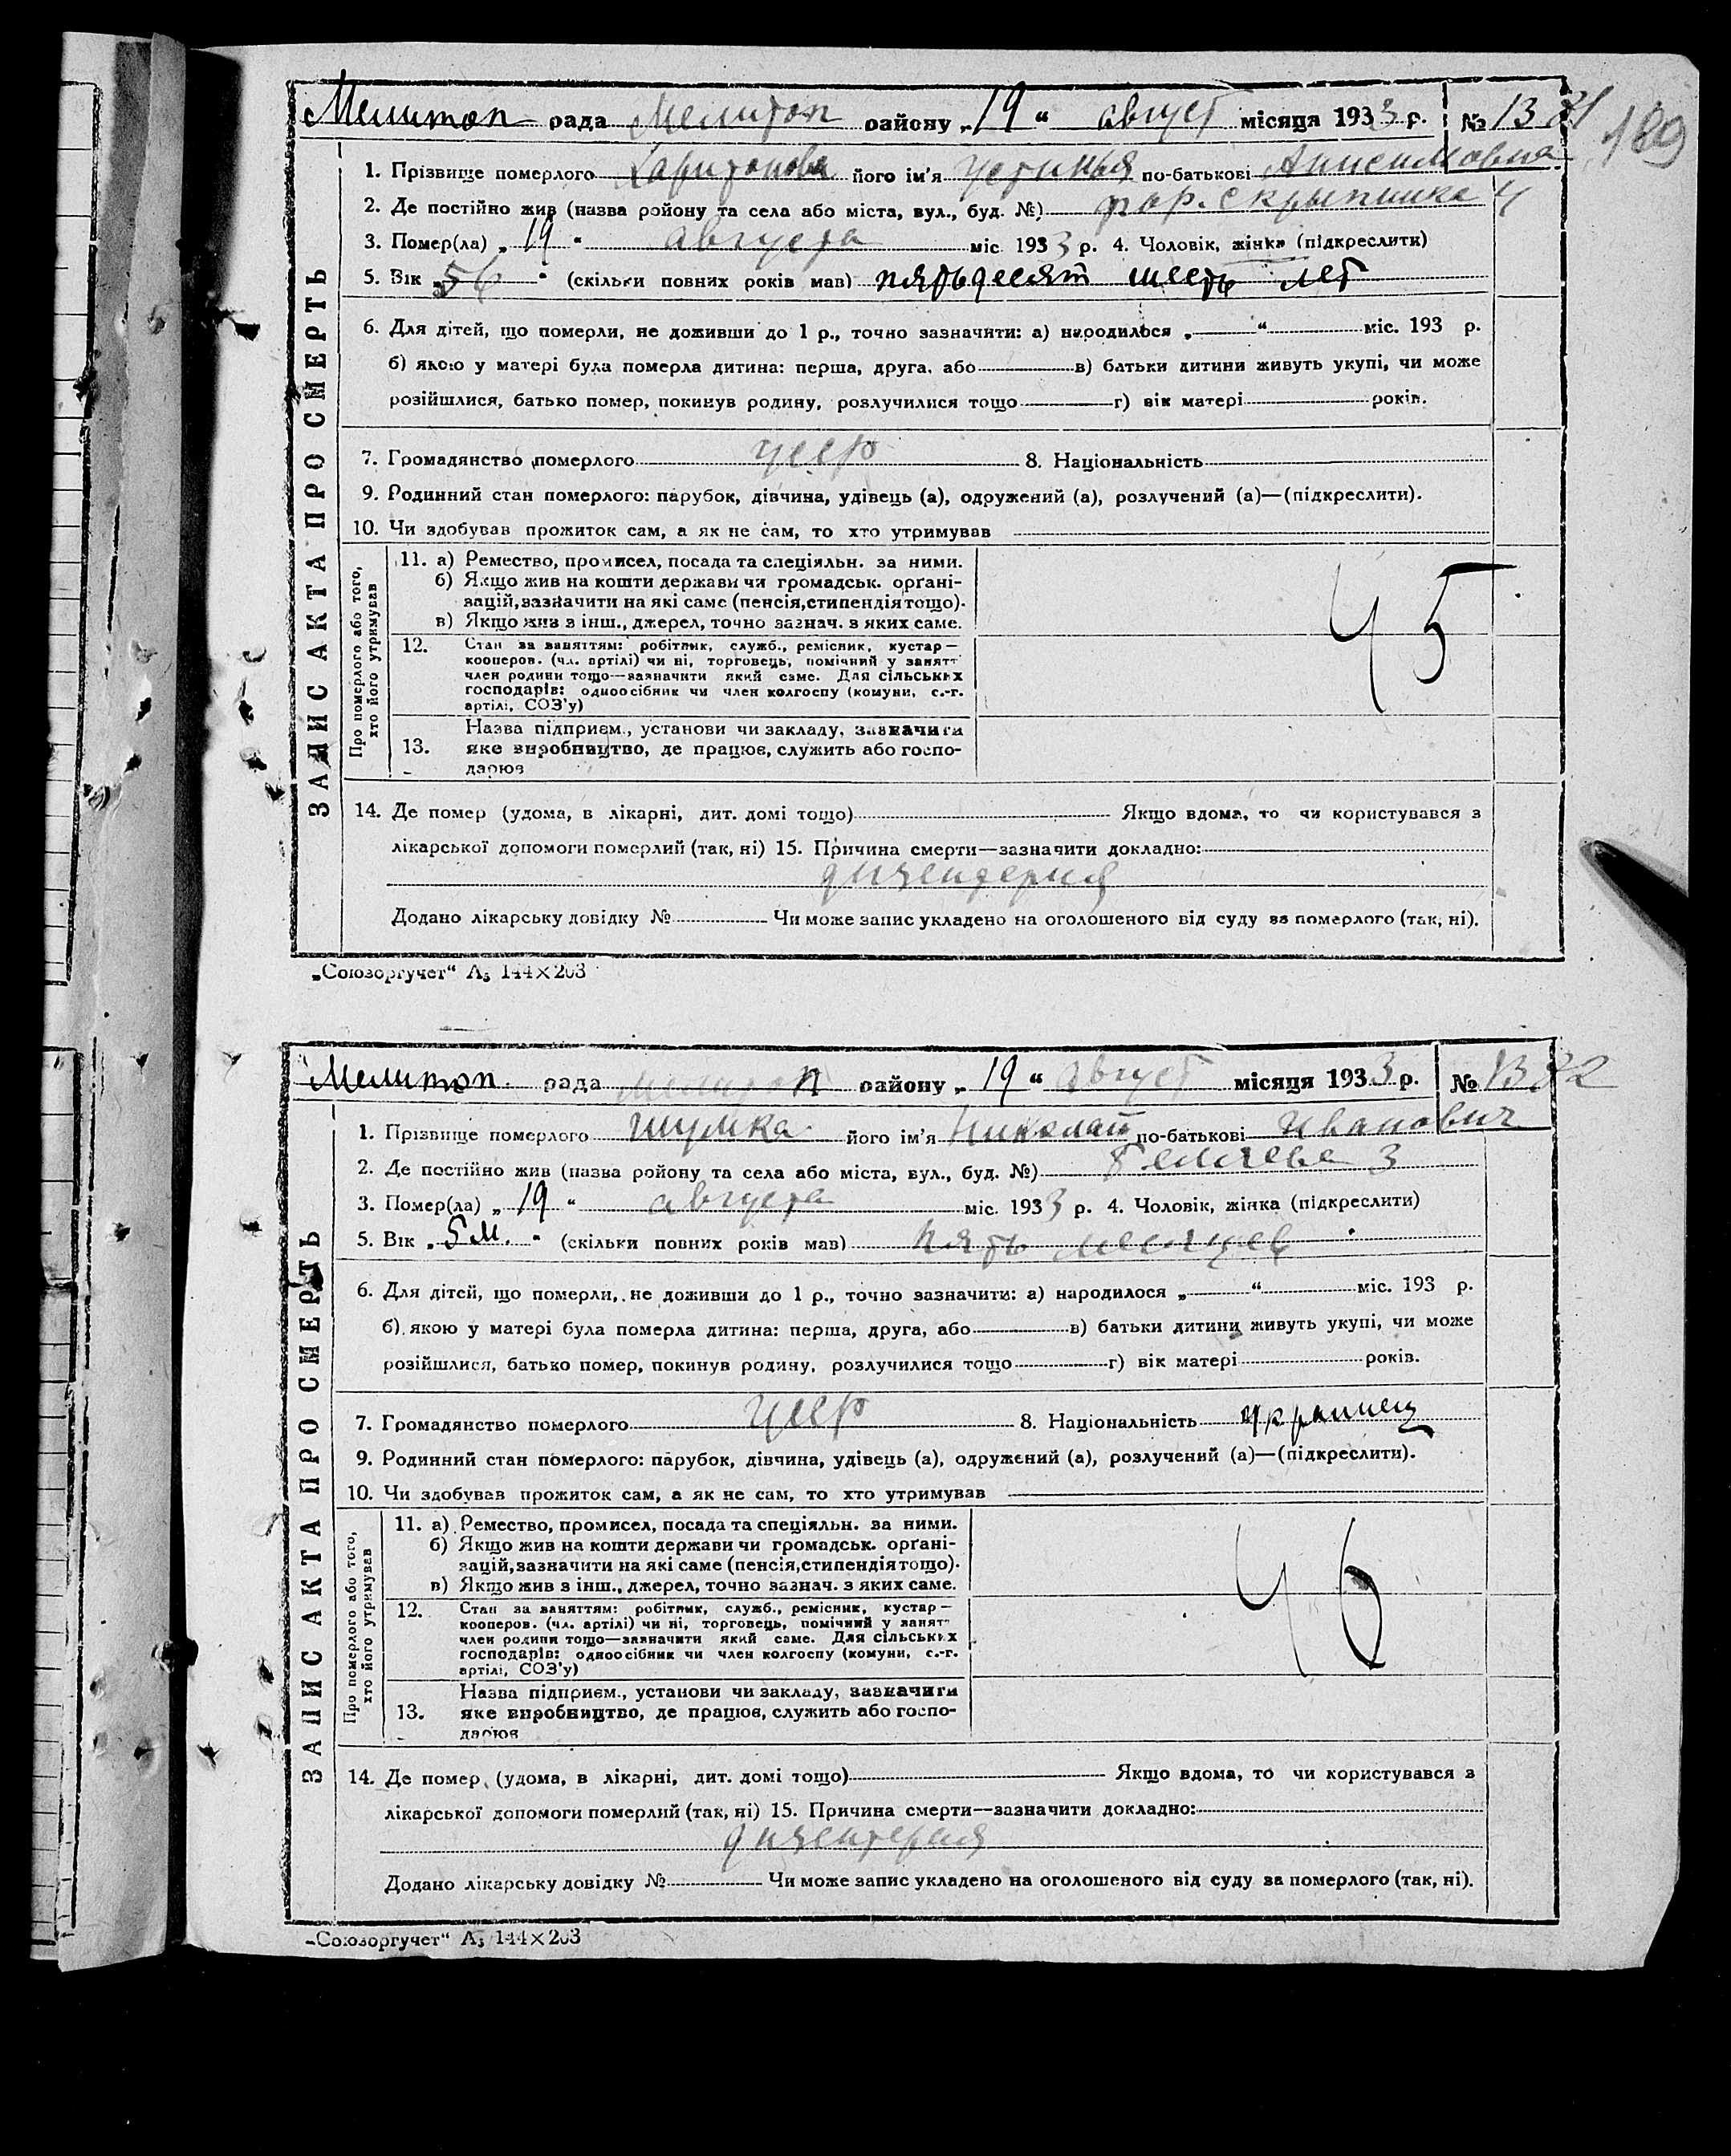 Мелитоп рада Мелитоп району „19“ август місяця 1933 р. № 1381
189
1. Прізвище померлого Харитонова його ім'я Устинья по-батькові Анисимовна
2. Де постійно жив (назва району та села або міста, вул., буд. №) пар. Скрыпника 4
3. Помер(ла) „19“ августа міс 1933 р. 4. Чоловік, жінка (підкреслити)
5. Вік „56“ (скільки повних років мав) пятьдесят шесть лет
6. Для дітей, що померли, не доживши до 1 р., точно зазначити: а) народилося „ “ міс. 193 р.
б) якою у матері була померла дитина: перша, друга, або в) батьки дитини живуть укупі, чи може
розійшлися, батько помер, покинув родину, розлучилися тощо г) вік матері років.
7. Громадянство померлого усср 8. Національність
9. Родинний стан померлого: парубок, дівчина, удівець (а), одружений (а), розлучений (а)—(підкреслити).
10. Чи здобував прожиток сам, а як не сам, то хто утримував
ЗАПИС АКТА ПРО СМЕРТЬ
Про померлого або того, хто його утримував
11. а) Ремество, промисел, посада та спеціяльн. за ними.
б) Якщо жив на кошти держави чи громадськ. орґані-
зацій, зазначити на які саме (пенсія, стипендія тощо).
в) Якщо жив з інш., джерел, точно зазнач. з яких саме.
45
12. Стан за заняттям: робітник, служб., ремісник, кустар—
кооперов. (чл. артілі) чи ні, торговець, помічний у занят
член родини тощо—зазначити який саме. Для сільських
господарів: одноосібник чи член колгоспу (комуни, с.-г.
артілі, СОЗ'у)
13. Назва підприєм., установи чи закладу, зазначити
яке виробництво, де працює, служить або госпо-
дарює
14. Де помер (удома, в лікарні, дит. домі тощо) Якщо вдома, то чи користувався з
лікарської допомоги померлий (так, ні) 15. Причина смерти—зазначити докладно:
дизендерия
Додано лікарську довідку № Чи може запис укладено на оголошеного від суду за померлого (так, ні).
„Союзоргучет“ А₅ 144×203
Мелитоп. рада Мелитоп району „19“ август місяця 1933 р. № 1382
1. Прізвище померлого Шумка його ім'я Николай по-батькові Иванович
2. Де постійно жив (назва району та села або міста, вул., буд. №) 3
3. Помер(ла) „19“ августа міс. 1933 р. 4. Чоловік, жінка (підкреслити)
5. Вік „5 м.“ (скільки повних років мав) пять месяцев
6. Для дітей, що померли, не доживши до 1 р., точно зазначити: а) народилося „ “ міс. 193 р.
б) якою у матері була померла дитина: перша, друга, або в) батьки дитини живуть укупі, чи може
розійшлися, батько помер, покинув родину, розлучилися тощо г) вік матері років.
7. Громадянство померлого усср 8. Національність украинец
9. Родинний стан померлого: парубок, дівчина, удівець (а), одружений (а), розлучений (а)—(підкреслити).
10. Чи здобував прожиток сам, а як не сам, то хто утримував
ЗАПИС АКТА ПРО СМЕРТЬ
Про померлого або того, хто його утримував
11. а) Ремество, промисел, посада та спеціяльн. за ними.
б) Якщо жив на кошти держави чи громадськ. орґані-
зацій, зазначити на які саме (пенсія, стипендія тощо).
в) Якщо жив з інш., джерел, точно зазнач. з яких саме.
46
12. Стан за заняттям: робітник, служб., ремісник, кустар—
кооперов. (чл. артілі) чи ні, торговець, помічний у занят
член родини тощо—зазначити який саме. Для сільських
господарів: одноосібник чи член колгоспу (комуни, с.-г.
артілі, СОЗ'у)
13. Назва підприєм., установи чи закладу, зазначити
яке виробництво, де працює, служить або госпо-
дарює
14. Де помер (удома, в лікарні, дит. домі тощо) Якщо вдома, то чи користувався з
лікарської допомоги померлий (так, ні) 15. Причина смерти—зазначити докладно:
дизентерия
Додано лікарську довідку № Чи може запис укладено на оголошеного від суду за померлого (так, ні).
„Союзоргучет“ А₅ 144×203